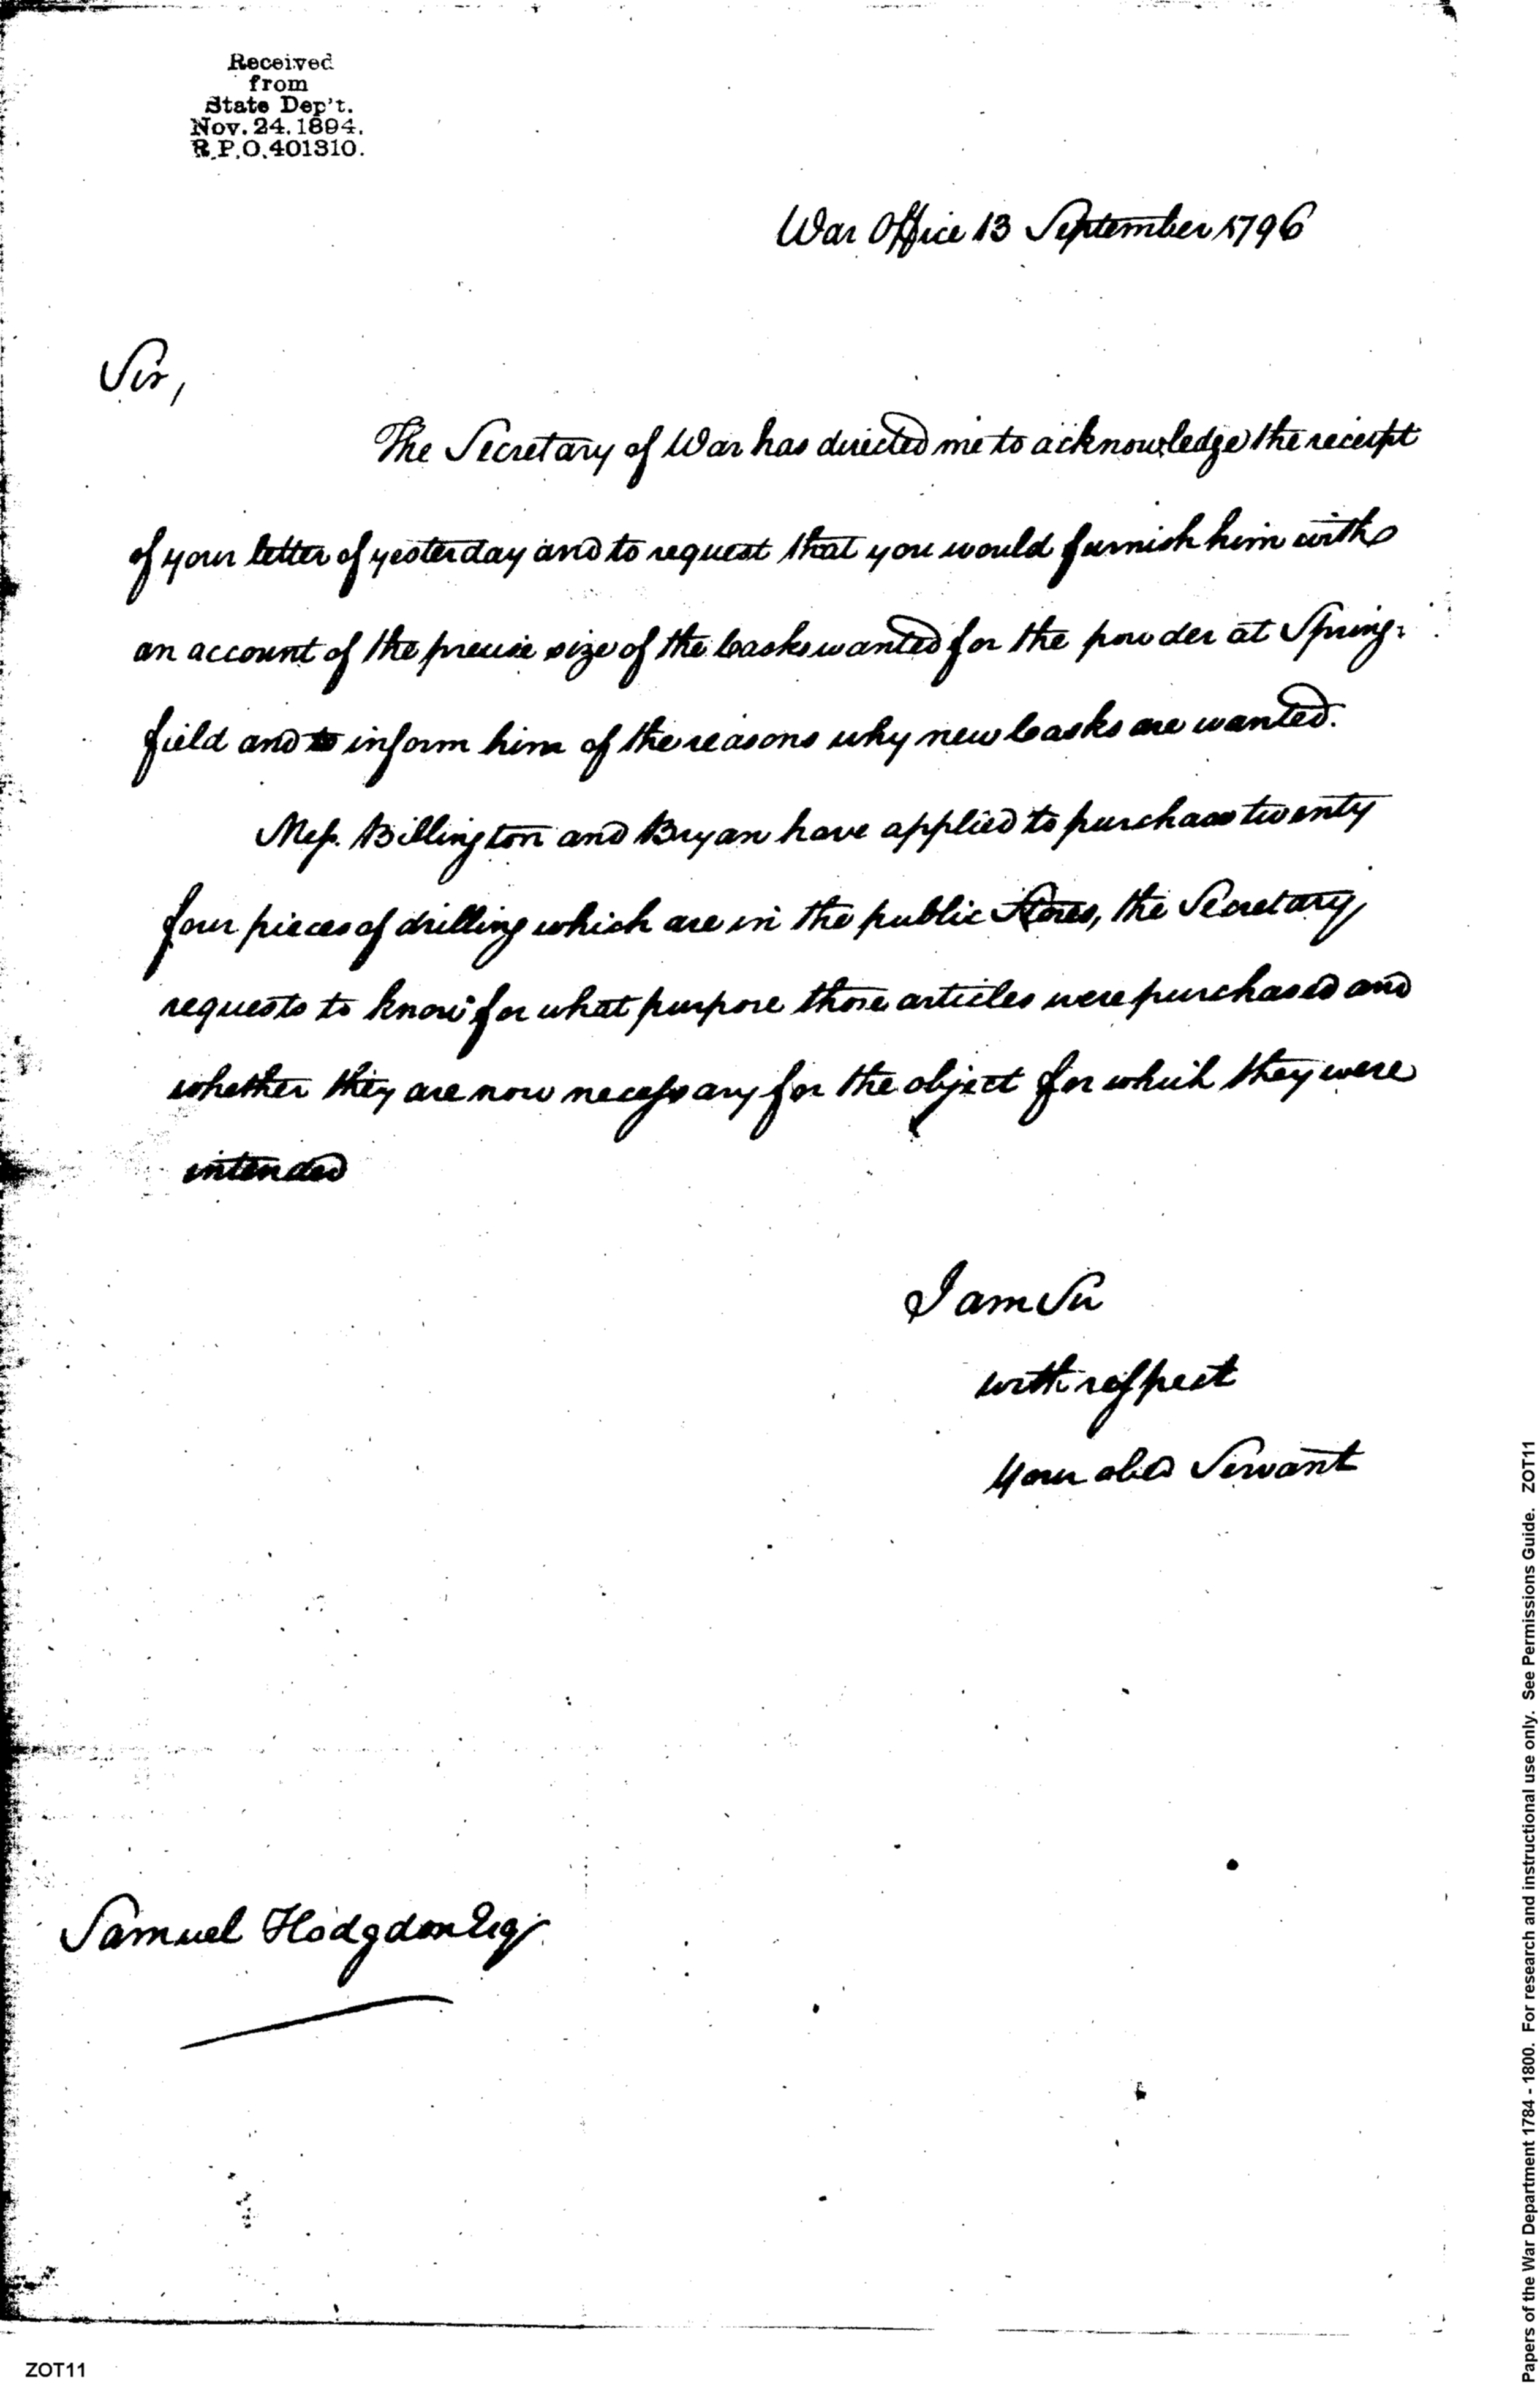 Received
from
State Dep't.
Nov. 24. 1894.
R.P.O. 401310.
War Office 13 September 1796
Sir,
The Secretary of War has directed me to acknowledge the receipt
of your letter of yesterday and to request that you would furnish him with
an account of the precise size of the casks wanted for the powder at Spring-
field and to inform him of the reasons why new casks are wanted.
Messs. Billington and Bryan have applied to purchase twenty
four pieces of drilling which are in the public Stores, the Secretary
requests to know for what purpose those articles were purchased and
whether they are now necessary for the object for which they were
intended
I am Sir
with respect
Your obed Servant
Samuel Hodgdon Esqr.
ZOT11
Papers of the War Department 1784 - 1800. For research and instructional use only. See Permissions Guide. ZOT11